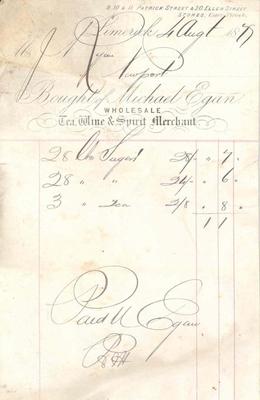 9, 10 & 11 PATRICK STREET & 30 ELLEN STREET
STORES,
Limerick 4 Augt 1879
J Ryan
Newport
Bought of Michael Egan
WHOLESALE
Tea, Wine & Spirit Merchant
28 lbs Sugar 28/- " 7 "
28 " " 24/- " 6 "
3 " Tea 2/8 " 8 "
1 1
Paid M Egan